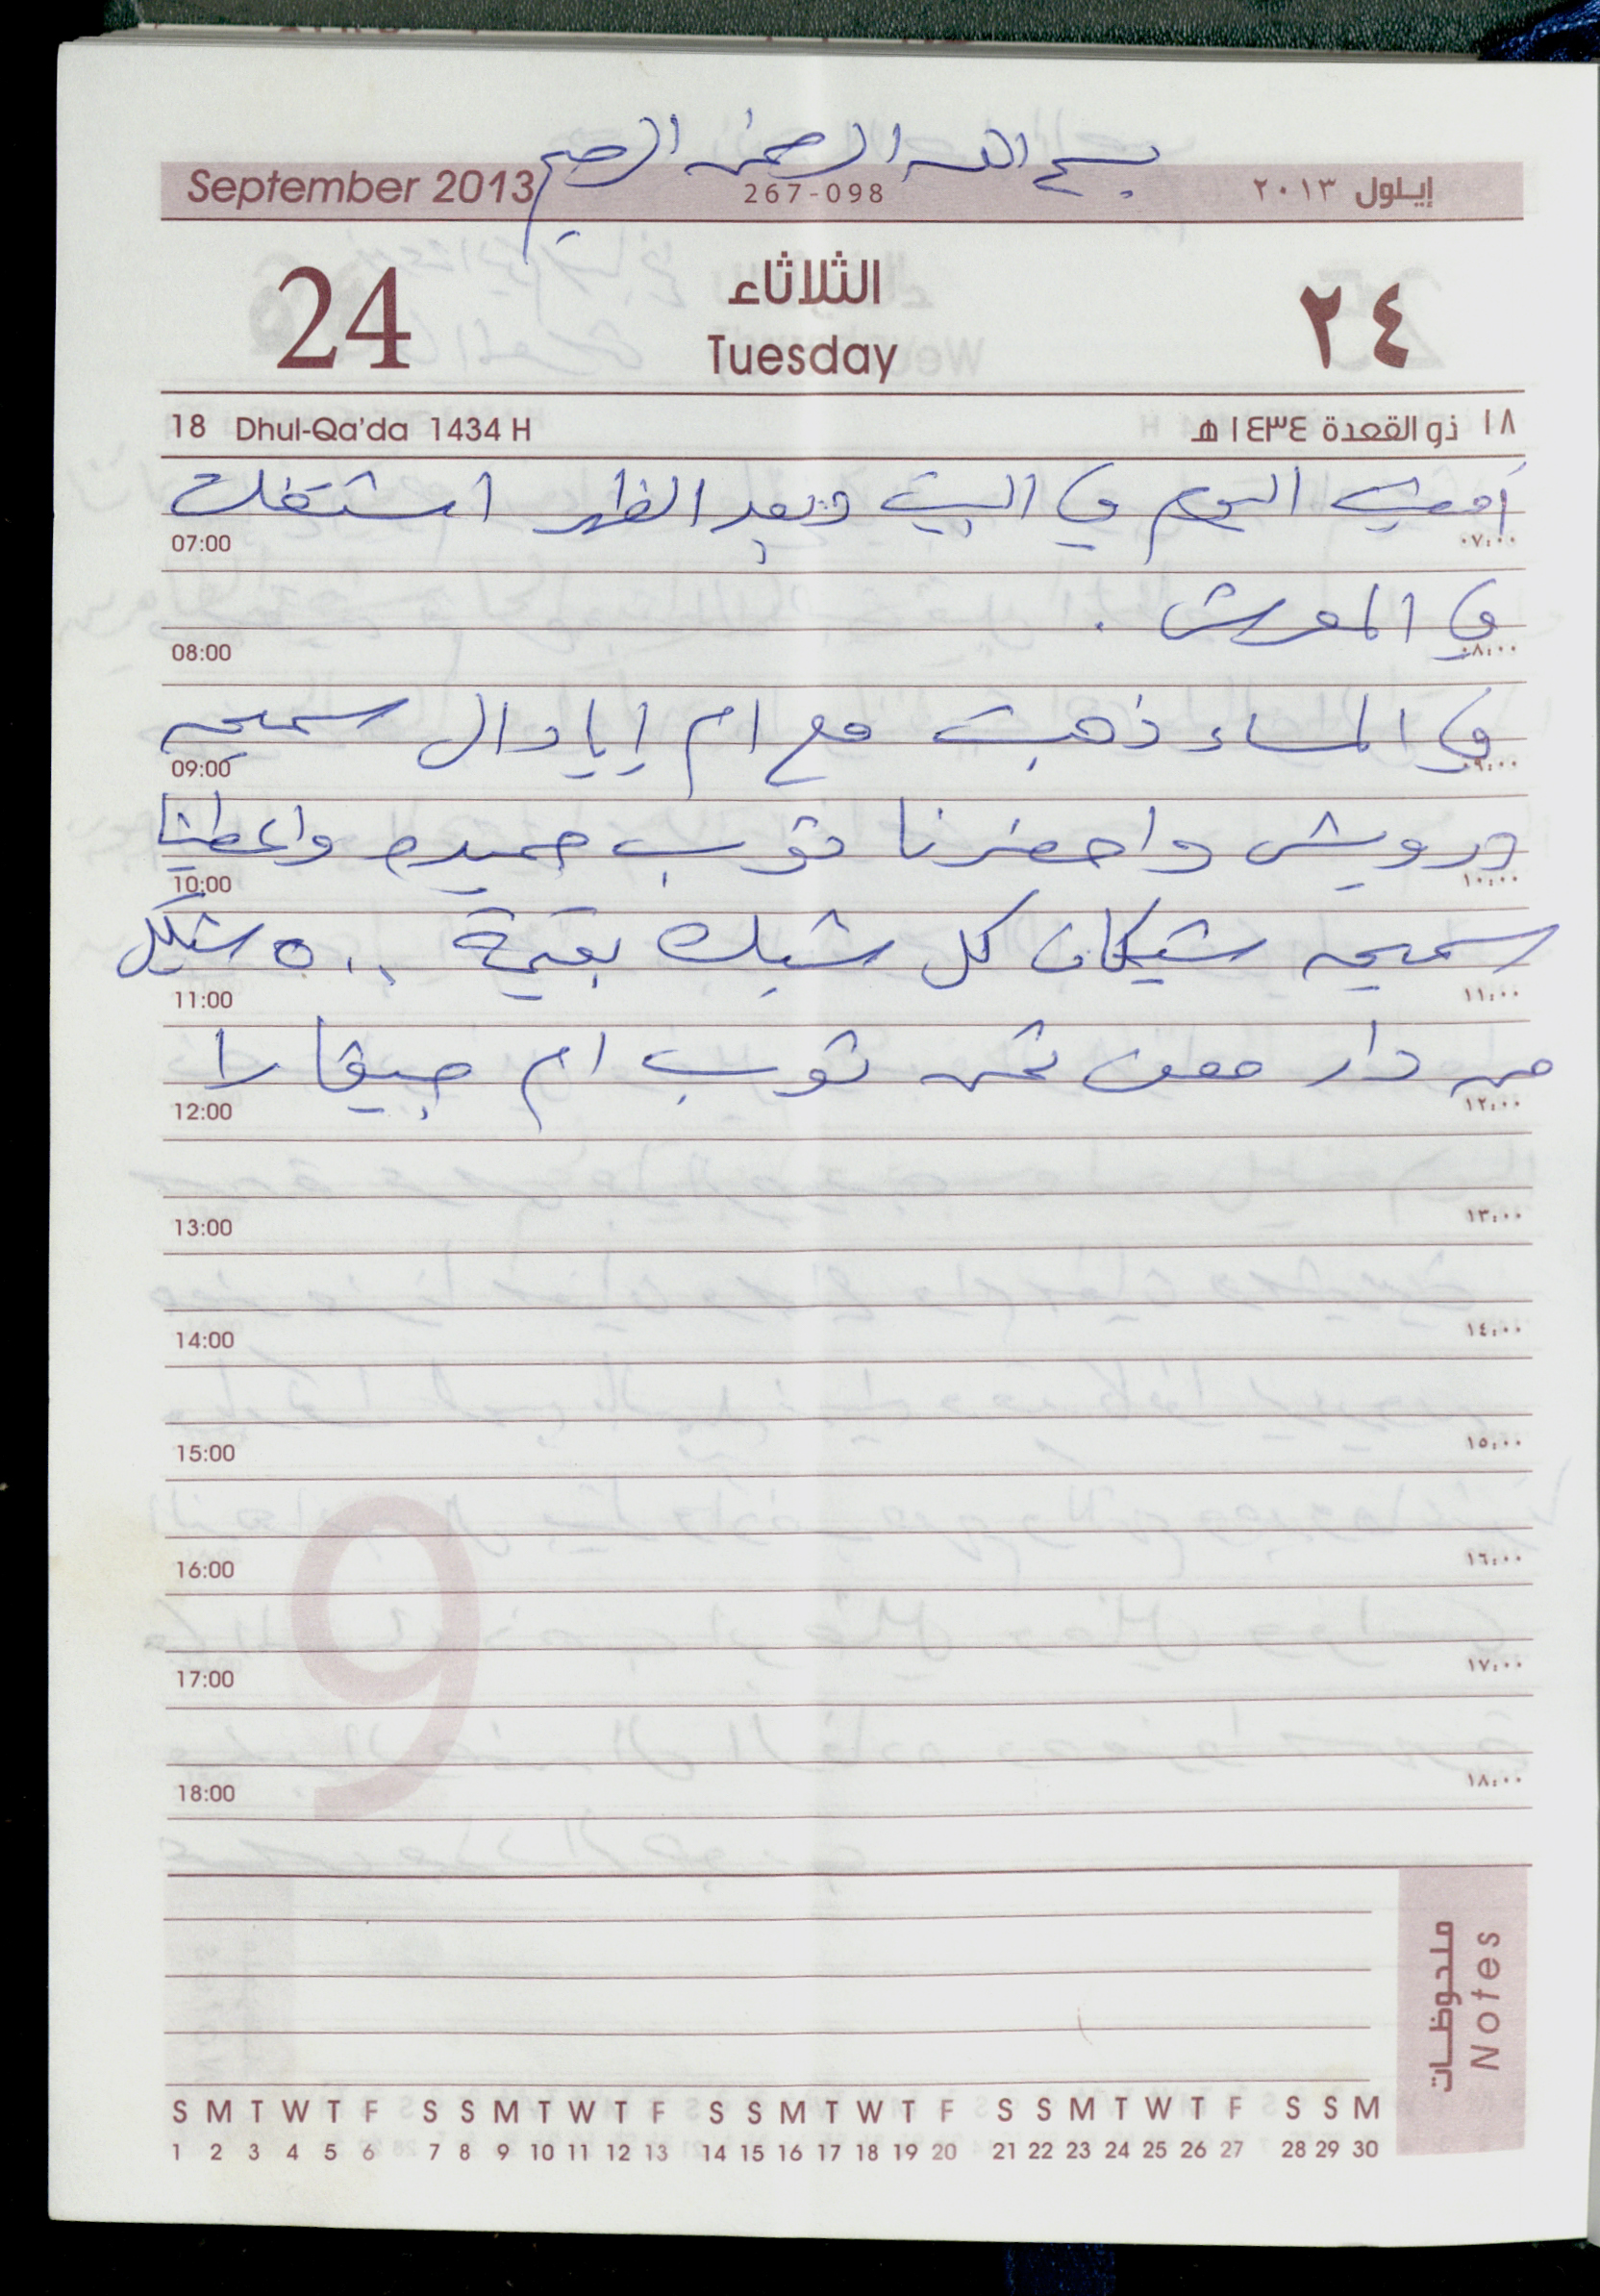 بسم الله الرحمن الرحيم
September 2013 267-098 إيلول ٢٠١٣
24 الثلاثاء ٢٤
Tuesday
18 Dhul-Qa'da 1434 H ١٨ ذو القعدة ١٤٣٤ هـ
أمضيت اليوم في البيت وبعد الظهر اشتغلت
07:00 ٠٧:٠٠
في المعرش .
08:00 ٠٨:٠٠
في المساء ذهبت مع ام إياد ال سميحه
09:00 ٠٩:٠٠
درويش واحضرنا ثوب حميده واعطينا
10:00 ١٠:٠٠
سميحه شيكان كل شيك بقيمة ٥٠٠ شيكل
11:00 ١١:٠٠
من دار معن ثمن ثوب ام جيفارا
12:00 ١٢:٠٠
13:00 ١٣:٠٠
14:00 ١٤:٠٠
15:00 ١٥:٠٠
16:00 ١٦:٠٠
17:00 ١٧:٠٠
18:00 ١٨:٠٠
9
ملحوظات
Notes
S M T W T F S S M T W T F S S M T W T F S S M T W T F S S M
1 2 3 4 5 6 7 8 9 10 11 12 13 14 15 16 17 18 19 20 21 22 23 24 25 26 27 28 29 30